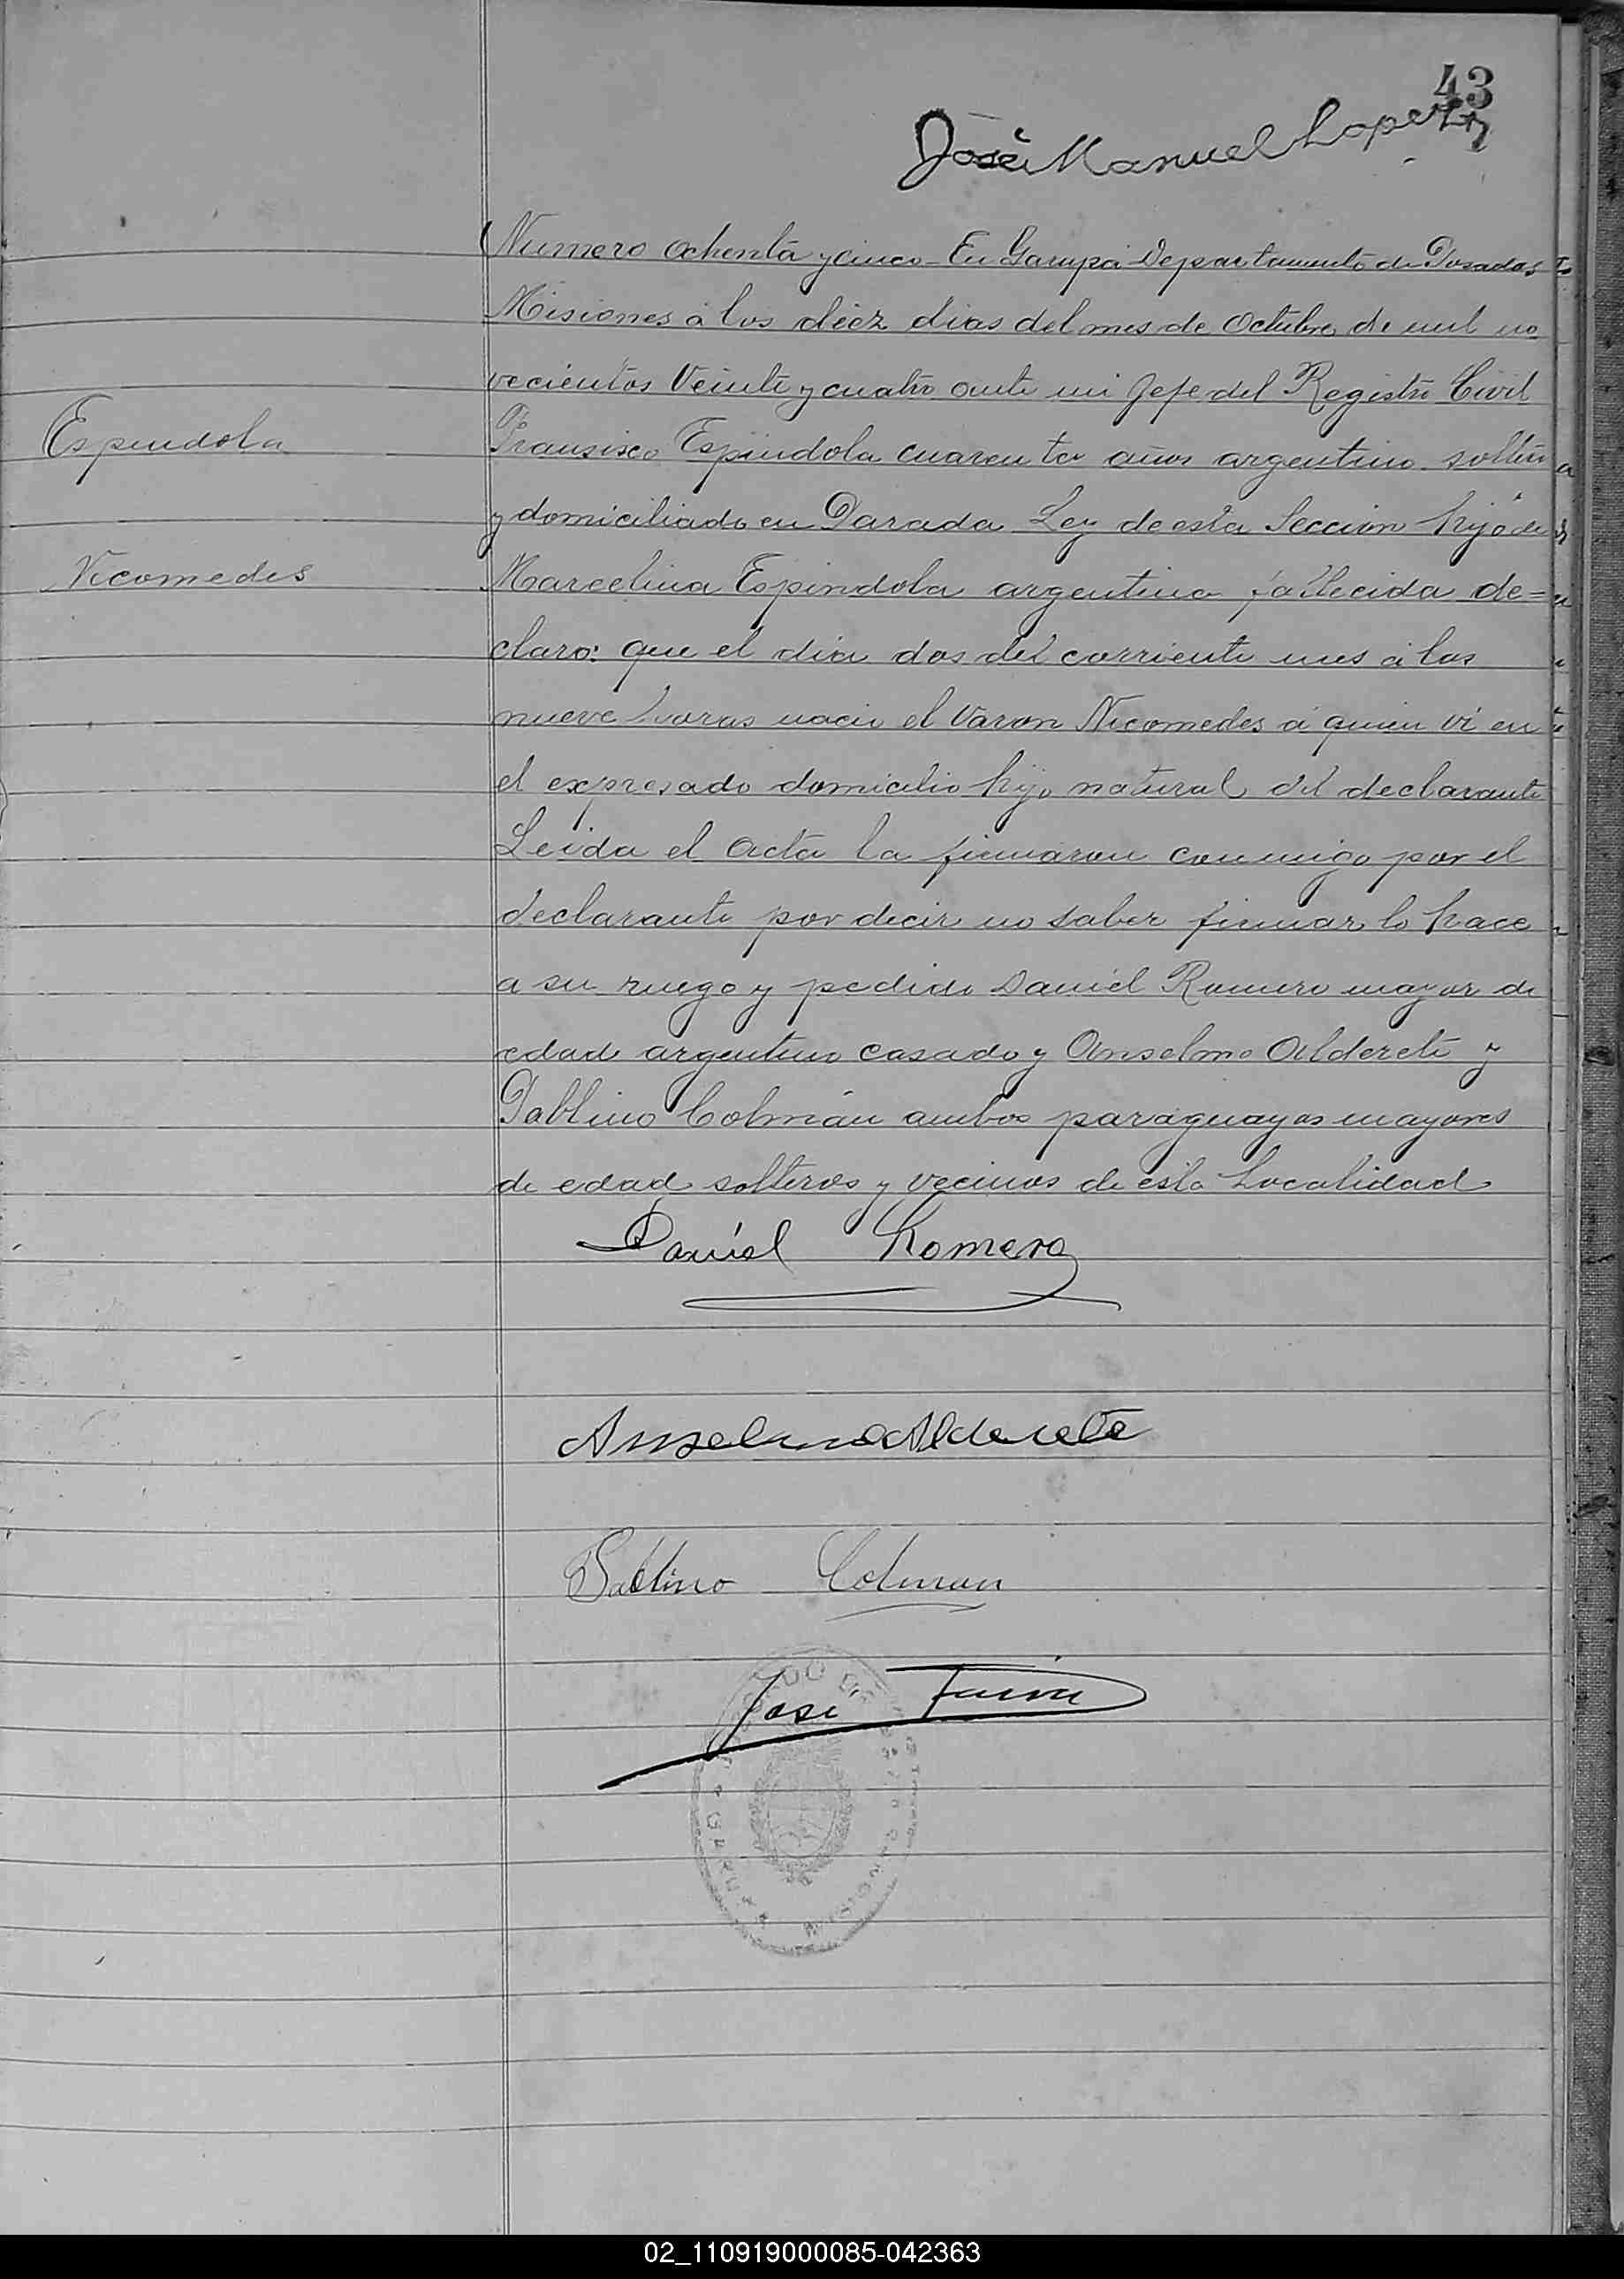 43
José Manuel Lopez
Numero ochenta y cinco - En Garupá Departamento de Posadas
Misiones á los diez dias del mes de Octubre de mil no
vecientos Veinte y cuatro ante mi Jefe del Registro Civil
Espindola
Fransisco Espindola cuarenta años argentino soltero
y domiciliado en Parada Ley de esta Seccion hijo de
Nicomedes
Marcelina Espindola argentina fallecida de=
claro: que el dia dos del corriente mes á las
nueve horas nacio el Varon Nicomedes á quien vi en
el expresado domicilio hijo natural del declarante
Leida el Acta la firmaron conmigo por el
declarante por decir no saber firmar lo hace
a su ruego y pedido Daniel Romero mayor de
edad argentino casado y Anselmo Alderete y
Pablino Colmán ambos paraguayos mayores
de edad solteros y vecinos de esta Localidad
Daniel Romero
Anselmo Alderete
Pablino Colman
José
GARUPA
MISIONES
02_110919000085-042363